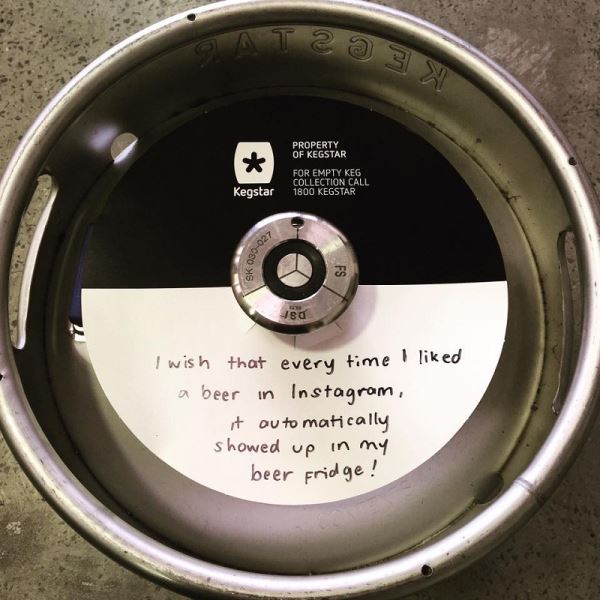 KEGSTAR
PROPERTY
OF KEGSTAR
FOR EMPTY KEG
COLLECTION CALL
1800 KEGSTAR
Kegstar
SK 030-027
FS
DSI
I wish that every time I liked
a beer in Instagram,
it automatically
showed up in my
beer fridge!